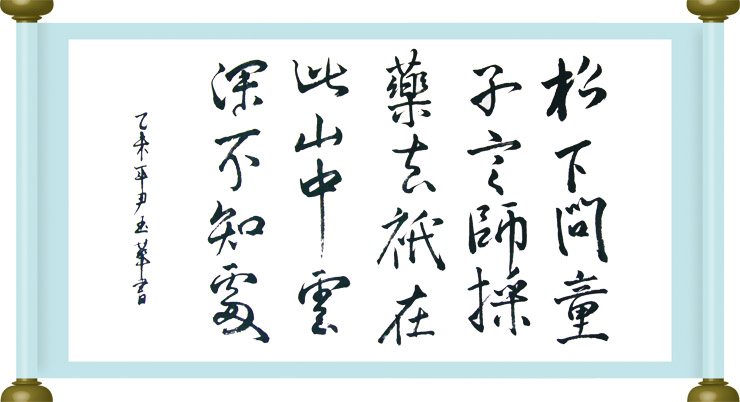 松下問童
子言師採
藥去祇在
此山中雲
深不知處
乙未年尹玉華書